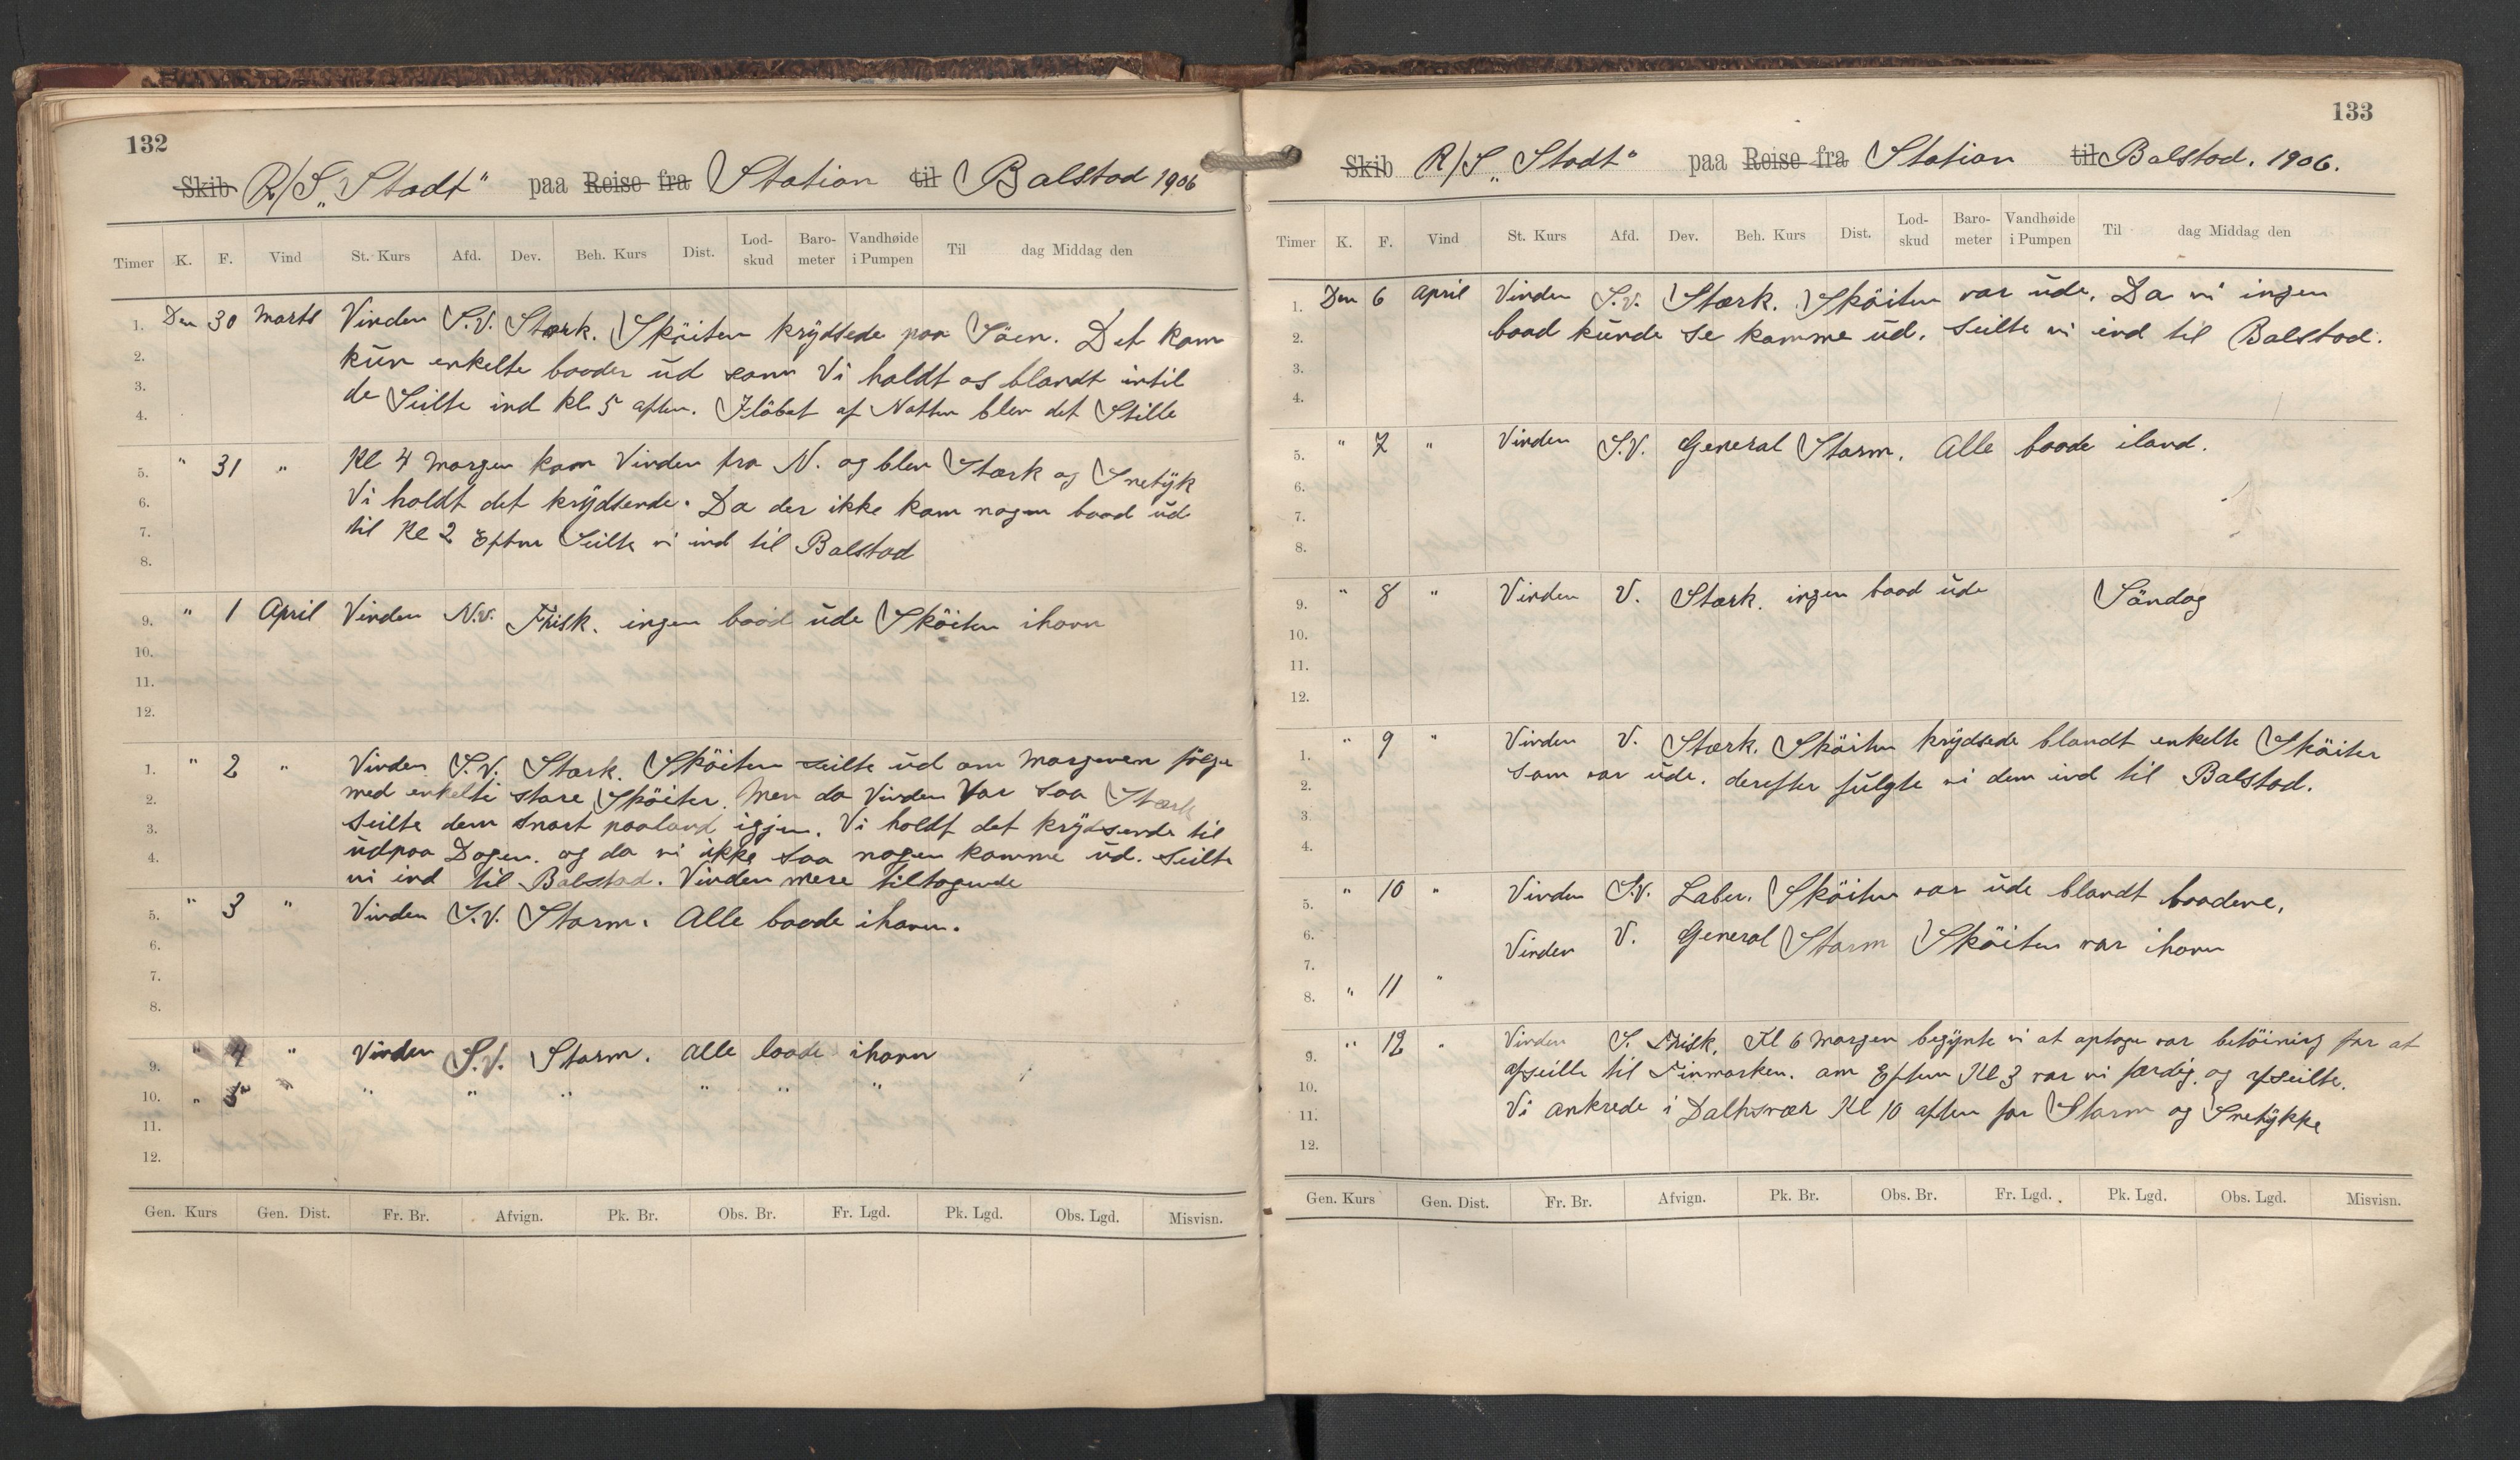 132
Skib R/S „Stadt" paa Reise fra Station til Balstad 1906
Timer K. F. Vind St. Kurs Afd. Dev. Beh. Kurs Dist. Lod-skud Baro-meter Vandhøide i Pumpen Til dag Middag den
1. Den 30 Marts Vinden S.V. Stærk. Sköiten krÿdsede paa Söen. Det kom
2. kün enkelte baader üd som Vi holdt os blandt intil
3. de Seilte ind kl 5 aften. Ilöbet af Natten blev det Stille
4.
5. " 31 " Kl 4 Morgen kom Vinden fra N. og blev Stærk og Snetÿk
6. Vi holdt det krÿdsende. Da der ikke kom nogen baad üd
7. til Kl 2 Eftm Seilte vi ind til Balstad
8.
9. " 1 April Vinden N.V. Frisk. ingen baad üde Sköiten ihavn
10.
11.
12.
1. " 2 " Vinden S.V. Stærk. Sköiten seilte üd om Morgenen fölge
2. med enkelte store Sköiter. Men da Vinden Var saa Stærk
3. Seilte dem snart paaland igjen. Vi holdt det krÿdsende til
4. üdpaa Dagen. og da vi ikke saa nogen komme üd. Seilte
vi ind til Balstad. Vinden mere tiltagende
5. " 3 " Vinden S.V. Storm. Alle baade ihavn.
6.
7.
8.
9. " 4 " Vinden S.V. Storm. Alle baade ihavn
10. " 5 " " " " " " "
11.
12.
Gen. Kurs Gen. Dist. Fr. Br. Afvign. Pk. Br. Obs. Br. Fr. Lgd. Pk. Lgd. Obs. Lgd. Misvisn.
133
Skib R/S „Stadt" paa Reise fra Station til Balstad. 1906.
Timer K. F. Vind St. Kurs Afd. Dev. Beh. Kurs Dist. Lod-skud Baro-meter Vandhøide i Pumpen Til dag Middag den
1. Den 6 April Vinden S.V. Stærk. Sköiten var üde. Da vi ingen
2. baad künde se komme üd. Seilte vi ind til Balstad.
3.
4.
5. " 7 " Vinden S.V. General Storm. Alle baade iland.
6.
7.
8.
9. " 8 " Vinden V. Stærk. ingen baad üde Söndag
10.
11.
12.
1. " 9 " Vinden V. Stærk. Sköiten krÿdsede blandt enkelte Sköiter
2. som var üde. derefter fülgte vi dem ind til Balstad.
3.
4.
5. " 10 " Vinden S.V. Laber. Sköiten var üde blandt baadene.
6. Vinden V. General Storm Sköiten var ihavn
7.
8. " 11 "
9. " 12 " Vinden S. Frisk. Kl 6 Morgen begÿnte vi at optage vor betöining for at
10. afseille til Finmarken. om Eftm Kl 3 var vi færdig. og afseilte.
11. Vi ankrede i Kl 10 aften for Storm og Snetÿkke
12.
Gen. Kurs Gen. Dist. Fr. Br. Afvign. Pk. Br. Obs. Br. Fr. Lgd. Pk. Lgd. Obs. Lgd. Misvisn.